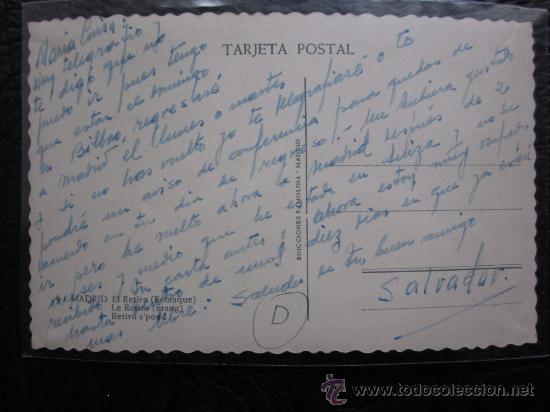 TARJETA POSTAL
Maria Luisa:
Hoy telegrafio y
te digo que no
puedo ir pues tengo
que estar el domingo
en Bilbao, regresaré
a Madrid el lunes o martes
y si no has vuelto yo te telegrafiaré o te
pondré un aviso de conferencia para quedar de
acuerdo en tu dia de regreso.- Me hubiera gustado
ir pero he vuelto ahora a Madrid despues de 2
meses y medio que he estado en Suiza y no he
recibido tu carta antes y ahora estoy muy ocupado
hasta dentro de unos diez dias en que ya estaré
mas libre. Saludos de tu buen amigo
Salvador.
MADRID El Retiro (Estanque)
Le Retiro (Etang)
Retiro's pond
D
EDICCIONES MADRID
www.todocoleccion.net